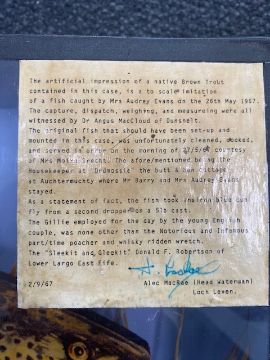 The artificial impression of a native Brown Trout
contained in this case, is a to scale imitation
of a fish caught by Mrs Audrey Evans on the 26th May 1967.
The capture, dispatch, weighing, and measuring were all
witnessed by Dr Angus MacCloud of Dunshelt.
The original fish that should have been set-up and
mounted in this case, was unfortunately cleaned, cooked,
and served in on the morning of 27/5/67 courtesy
of Mrs The aforementioned being the
Housekeeper at 'Drumossie' the butt & ben cottage
at Auchtermuchty where Mr Barry and Mrs Audrey Evans
stayed.
As a statement of fact, the fish took an iron blue dun
fly from a second dropper on a 5lb cast.
The Gillie employed for the day by the young English
couple, was none other than the Notorious and Infamous
part/time poacher and whisky ridden wretch.
The "Sleekit and Gleekit" Donald F. Robertson of
Lower Largo East Fife.
2/9/67 Alec MacRae (Head Waterman)
Loch Leven.